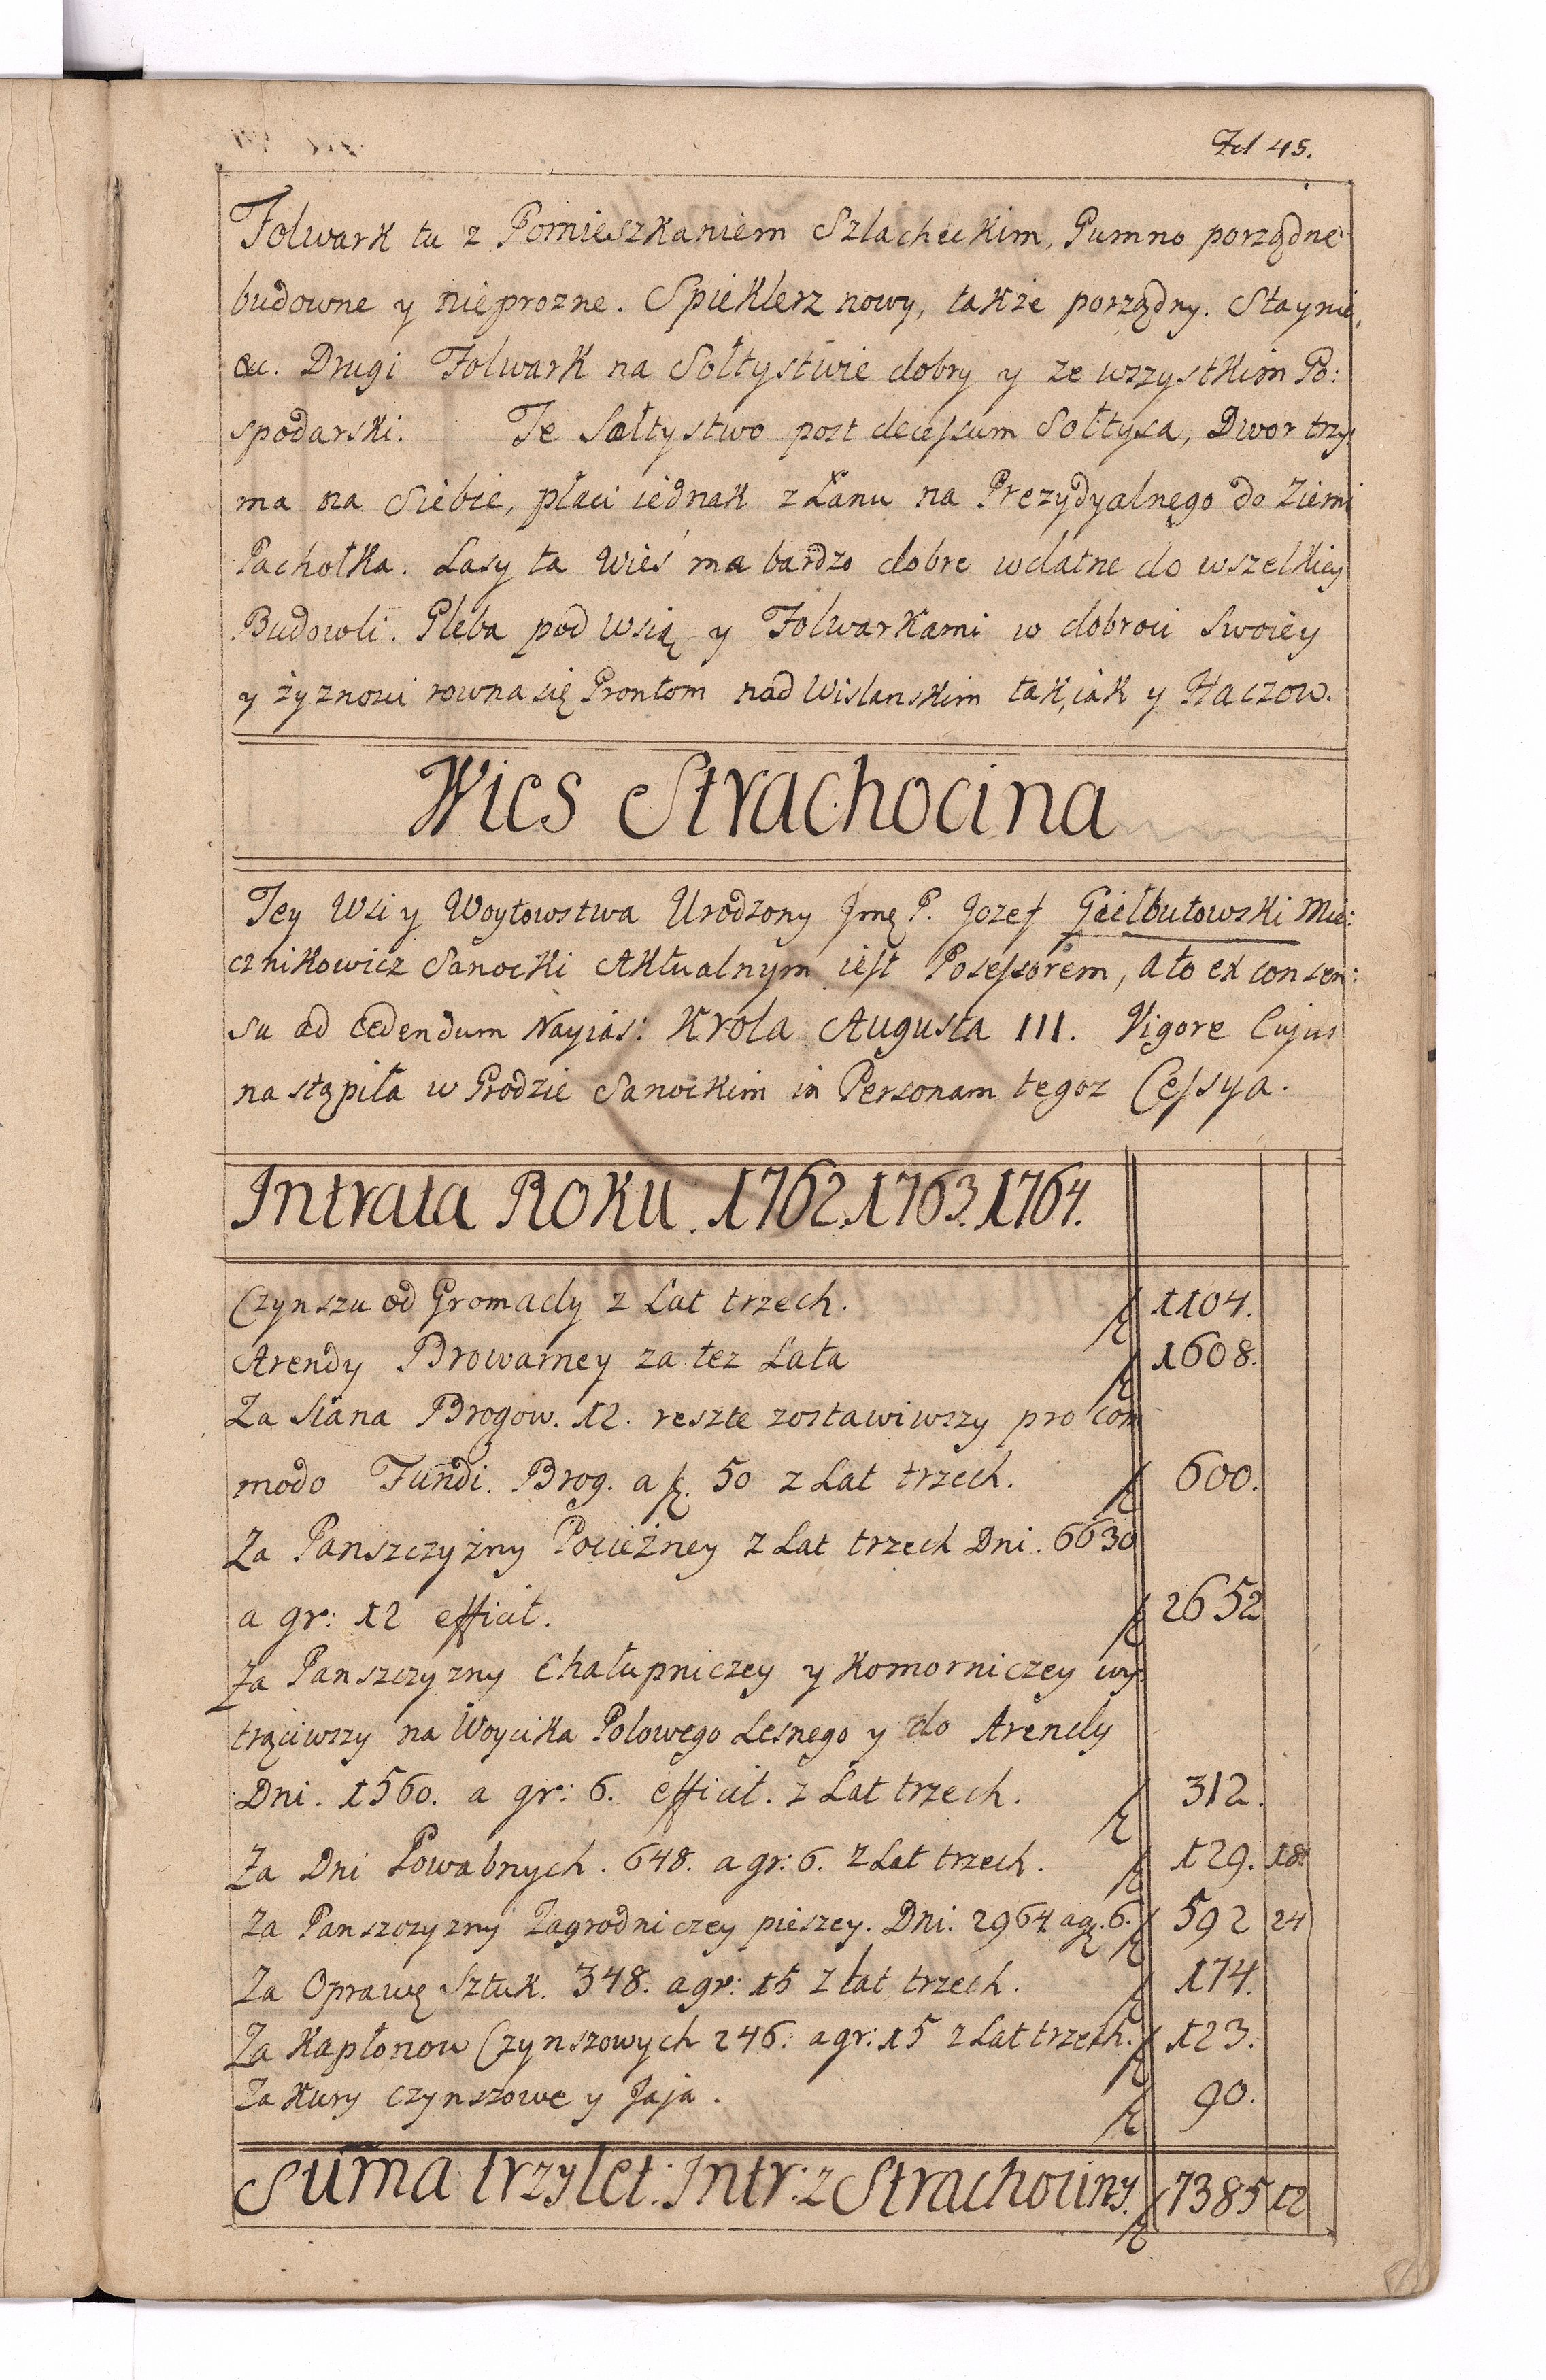 Fol 45.
Folwark tu z Pomieszkaniem Szlacheckim, Gumno porządne
budowne y nieprozne. Spieklerz nowy, także porządny. Staynie,
&c. Drugi Folwark na Sołtystwie dobry y ze wszystkim Go:
spodarski. Te Sołtystwo post decessum Sołtysa, Dwor trzy
ma na Siebie, płaci iednak z Łanu na Prezydyalnego do Ziemi
Pachołka. Lasy ta Wieś ma bardzo dobre wdatne do wszelkiey
Budowli. Gleba pod Wsią y Folwarkami w dobroci Swoiey
y żyznosci rowna się Grontom nad Wislanskim tak, iak y Haczow.
Wies Strachocina
Tey Wsi y Woytowstwa Urodzony Jmę P. Jozef Giełbutowski Mie:
cznikowicz Sanocki Aktualnym iest Posessorem, a to ex consen:
su ad cedendum Nayias: Krola Augusta III. Vigore Cujus
nastąpiła w Grodzie Sanockim in Personam tegoz Cessya.
Intrata Roku. 1762. 1763. 1764.
Czynszu od Gromady z Lat trzech. ƶ 1104.
Arendy Browarney za tez Lata ƶ 1608.
Za Siana Brogow. 12. reszte zostawiwszy pro com
modo Fundi. Brog. a ƶ. 50 z Lat trzech. ƶ 600.
Za Panszczyżny Pociężney z Lat trzech Dni. 6630
a gr: 12 efficit. ƶ 2652
Za Panszczyzny Chałupniczey y Komorniczey wy:
trąciwszy na Woycika Polowego Lesnego y do Arendy
Dni. 1560. a gr: 6. efficit. z Lat trzech. ƶ 312.
Za Dni Powabnych. 648. a gr: 6. z Lat trzech. ƶ 129. 18.
Za Panszczyzny Zagrodniczey pieszey. Dni. 2964 a g. 6. ƶ 592 24
Za Oprawę Sztuk. 348. a gr: 15 z lat trzech. ƶ 174.
Za Kapłonow Czynszowych 246: a gr: 15 z Lat trzech. ƶ 123.
Za Kury czynszowe y Jaja. ƶ 90.
Suma trzylet: Intr: z Strachociny. ƶ 7385 12